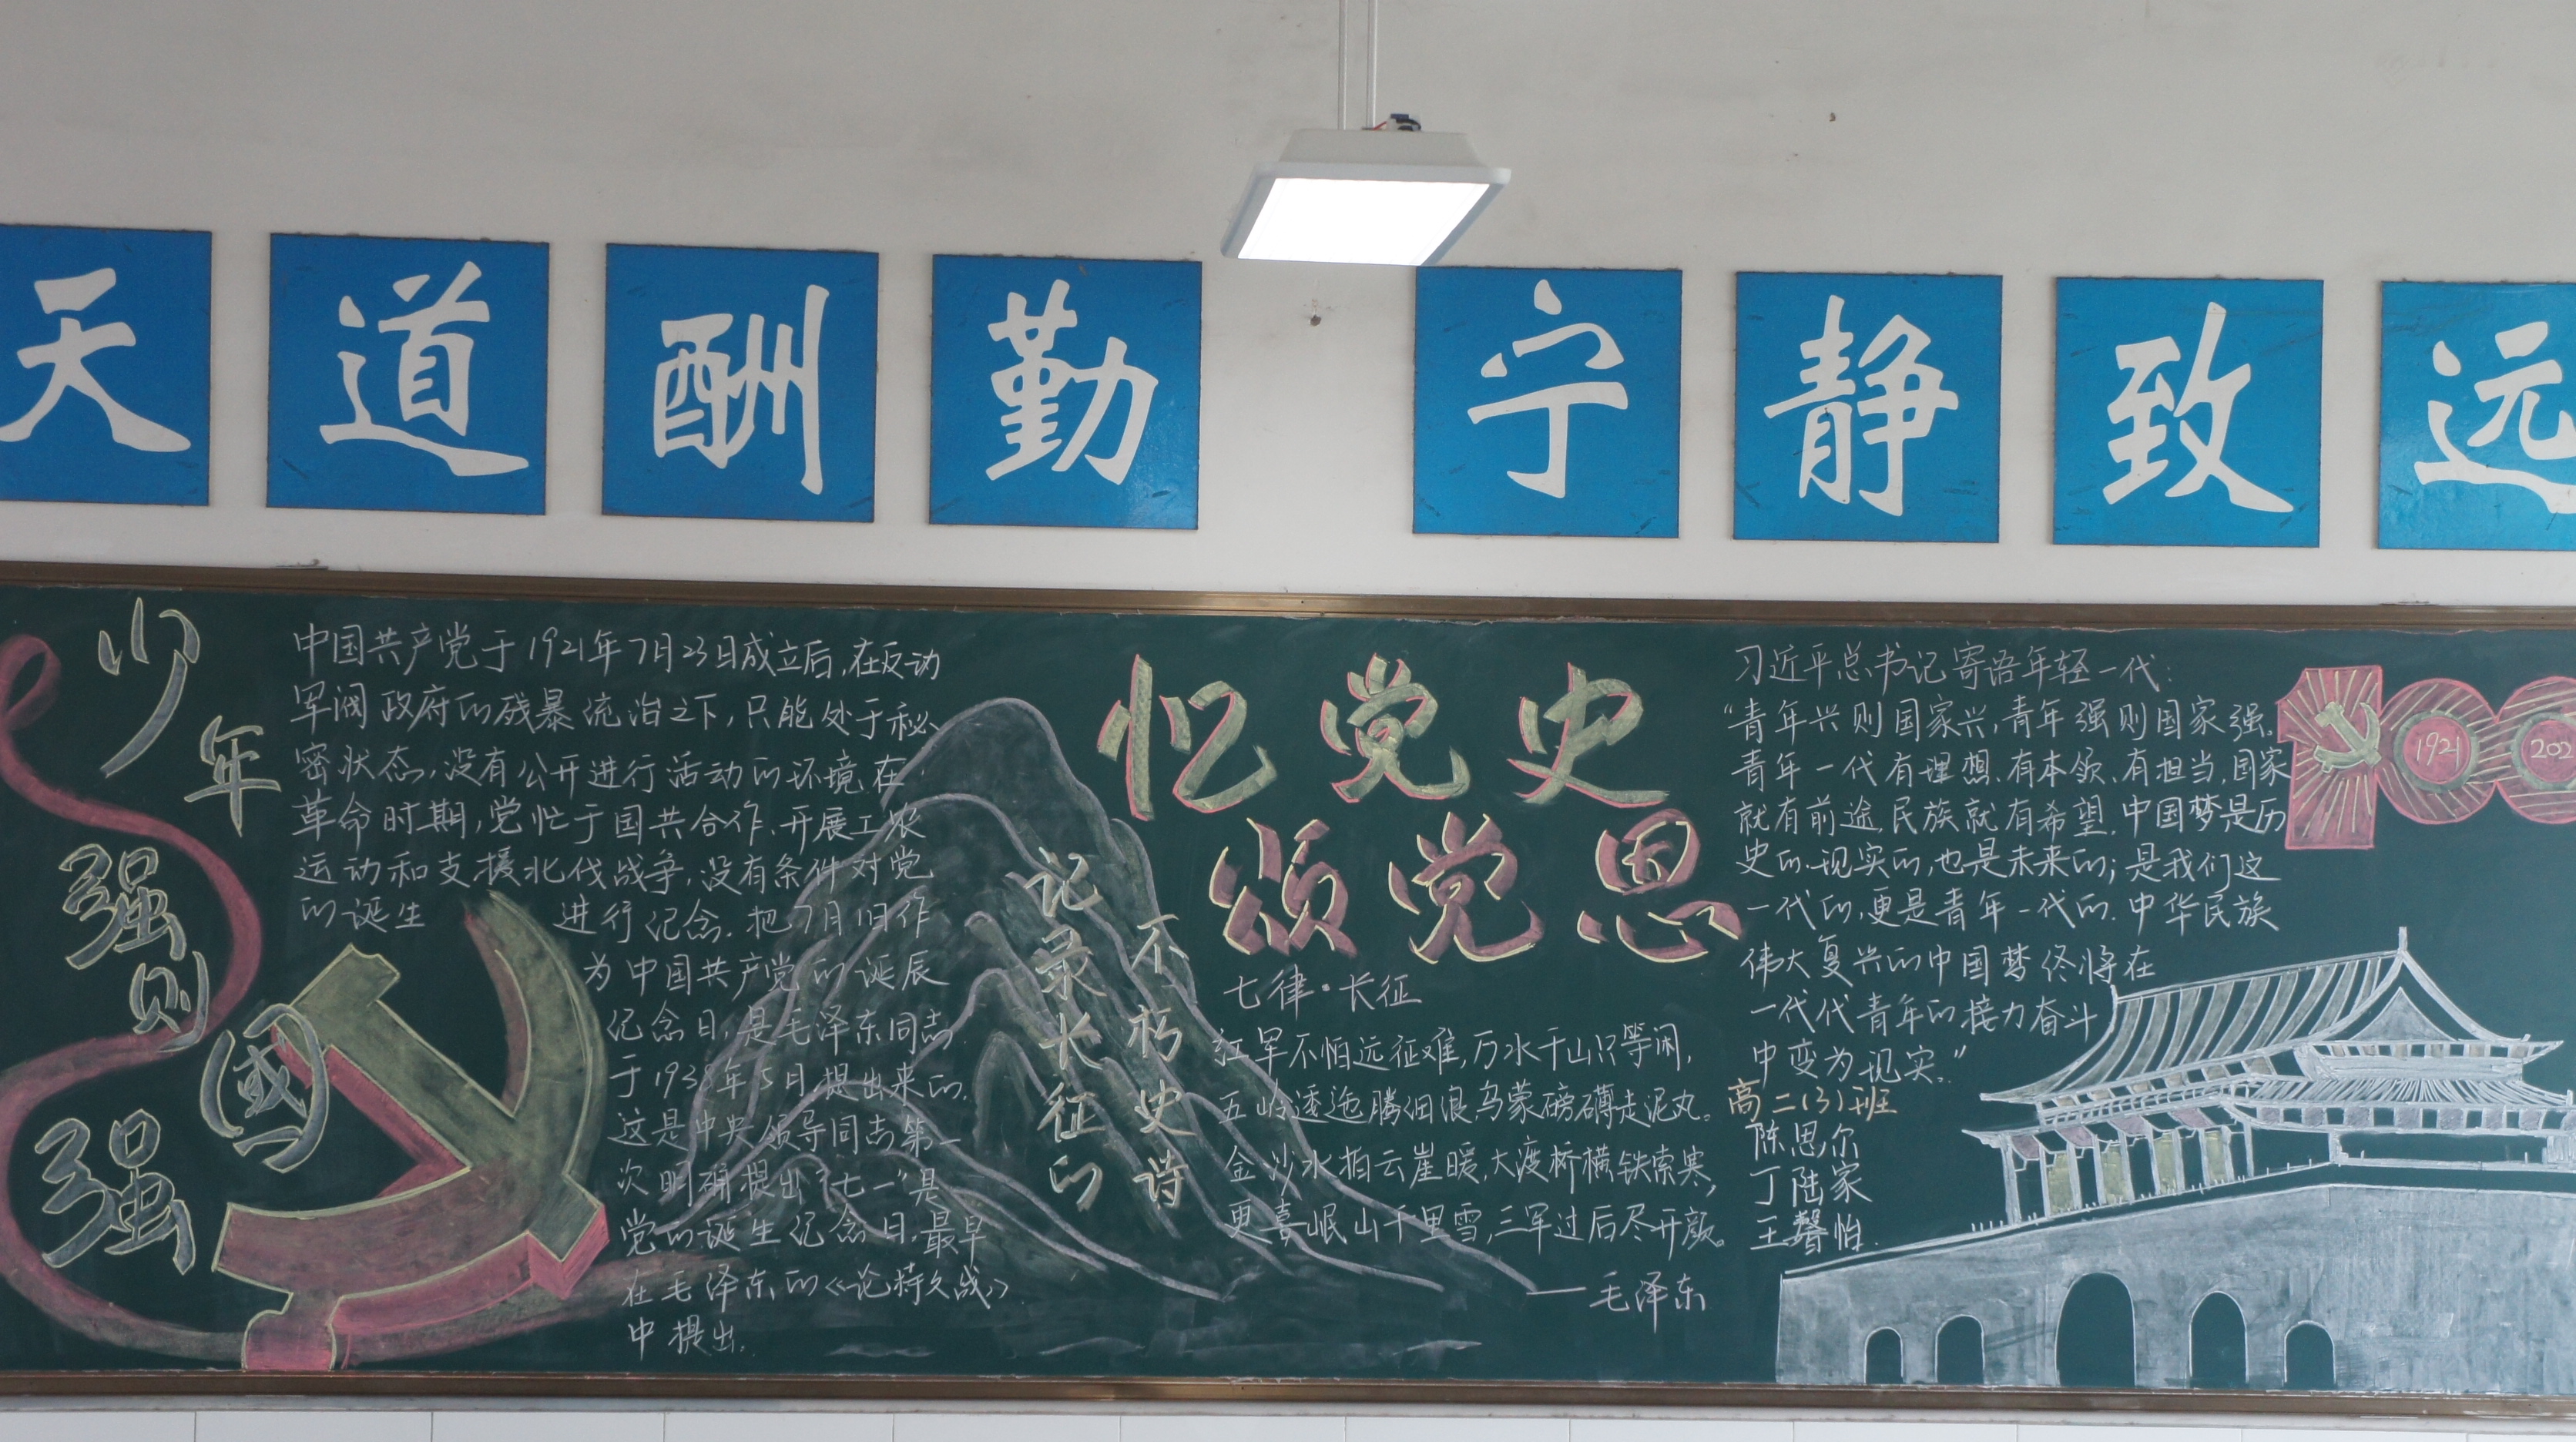 天道酬勤 宁静致远
少年强则國强
中国共产党于1921年7月23日成立后,在反动
军阀政府的残暴统治之下,只能处于秘
密状态,没有公开进行活动的环境在
革命时期,党忙于国共合作,开展工农
运动和支援北伐战争,没有条件对党
的诞生 进行纪念.把7月1日作
为中国共产党的诞辰
纪念日,是毛泽东同志
于1938年5月提出来的.
这是中央领导同志第一
次明确提出“七一”是
党的诞生纪念日,最早
在毛泽东的《论持久战》
中提出.
记录长征的
不朽史诗
忆党史
颂党恩
七律·长征
红军不怕远征难,万水千山只等闲,
五岭逶迤腾细浪乌蒙磅礴走泥丸。
金沙水拍云崖暖,大渡桥横铁索寒,
更喜岷山千里雪,三军过后尽开颜。
——毛泽东
习近平总书记寄语年轻一代:
“青年兴则国家兴,青年强则国家强.
青年一代有理想.有本领.有担当,国家
就有前途,民族就有希望.中国梦是历
史的.现实的,也是未来的;是我们这
一代的,更是青年一代的.中华民族
伟大复兴的中国梦终将在
一代代青年的接力奋斗
中变为现实。”
高二(3)班
陈思尔
丁陆家
王馨怡
100
1921
202